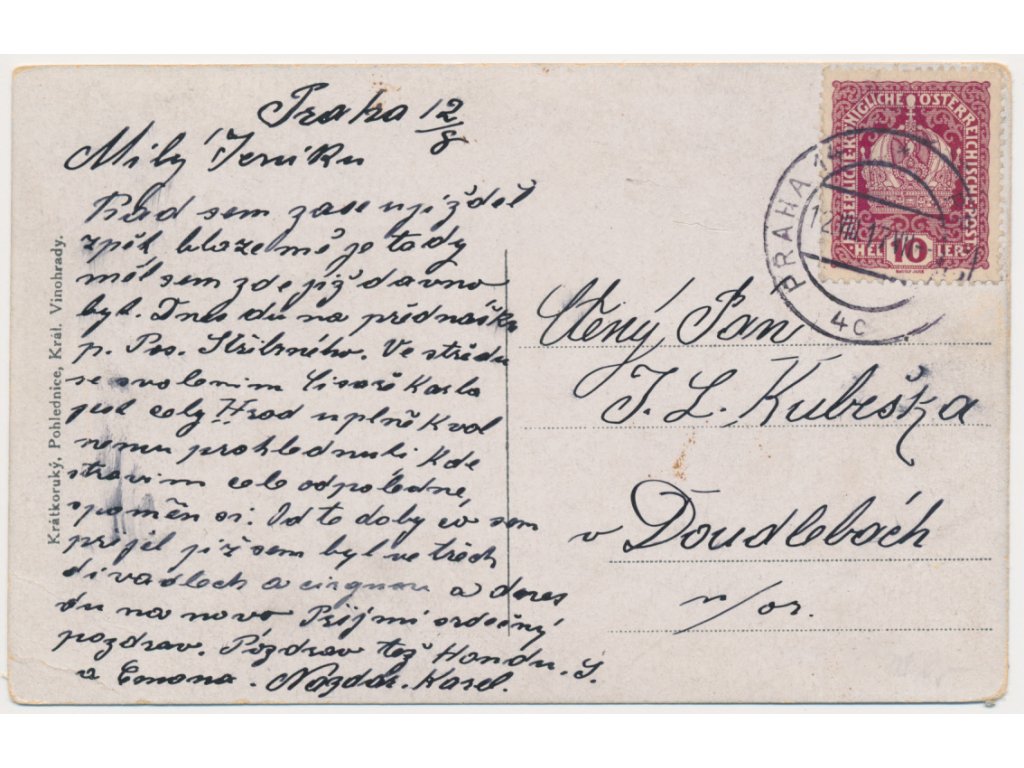 Praha 12/8
Milý Jeníku
Rád sem zase ujížděl
zpět blaze mě je tady
měl sem zde již dávno
být. Dnes du na přednášku
p. Pos. Stříbrného. Ve středu
se svolením Císaře Karla
jsem celý Hrad uplně kvol
nemu prohlednutí kde
strávím celo odpoledne,
spoměn si. Od te doby co sem
přijel již sem byl ve třech
divadlech a cirqusu a dnes
du na novo Přijmi srdečný
pozdrav. Pozdrav též Handu. S.
a Emona. Nazdar. Karel.
Krátkoruký, Pohlednice, Král. Vinohrady.
KAISERLICHE KÖNIGLICHE ÖSTERREICHISCHE POST
HELLER 10 HELLER
PRAHA
12.VIII.17
4c
Ctěný Pan
J. L. Kubeška
v Doudlebách
n/or.